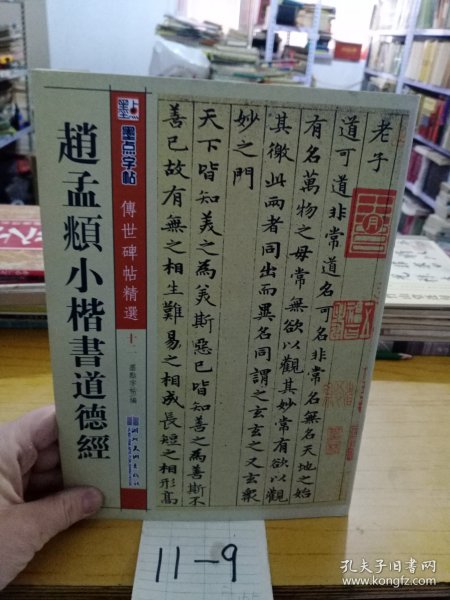 墨点
墨点字帖
傳世碑帖精選
墨點字帖 編
湖北美術出版社
趙孟頫小楷書道德經
老子
道可道非常道名可名非常名無名天地之始
有名萬物之母常無欲以觀其妙常有欲以觀
其徼此兩者同出而異名同謂之玄玄之又玄衆
妙之門
天下皆知美之為美斯惡已皆知善之為善斯不
善已故有無之相生難易之相成長短之相形高
11-9
孔夫子旧书网
www.kongfz.com